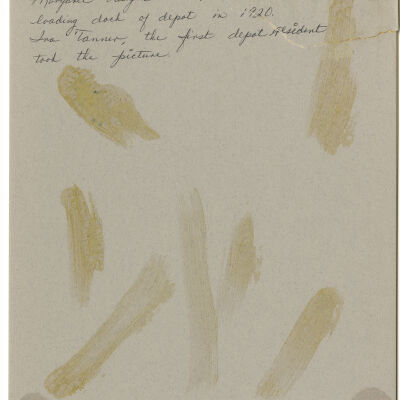 loading dock of depot in 1920.
Ira Tanner, the first depot resident
took the picture.